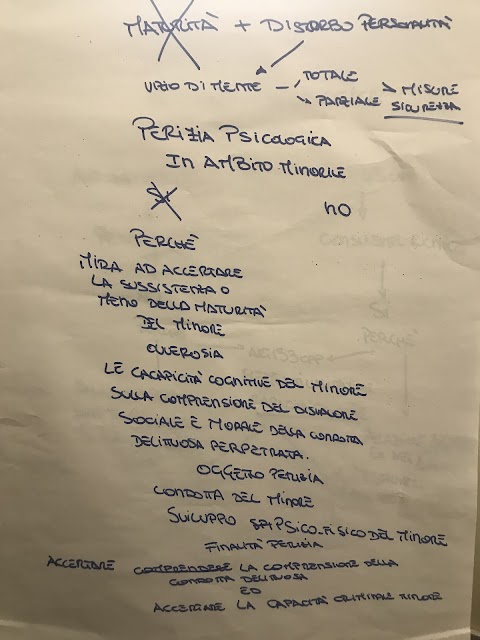 MATURITÀ + DISTURBO PERSONALITÀ
VIZIO DI MENTE → TOTALE
→ PARZIALE > MISURE
SICUREZZA
PERIZIA PSICOLOGICA
IN AMBITO MINORILE
SI NO
PERCHÈ
MIRA AD ACCERTARE
LA SUSSISTENZA O
MENO DELLA MATURITÀ
DEL MINORE
OVVEROSIA
LE CACAPICITÀ COGNITIVE DEL MINORE
SULLA COMPRENSIONE DEL DISVALORE
SOCIALE E MORALE DELLA CONDOTTA
DELITUOSA PERPETRATA.
OGGETTO PERIZIA
CONDOTTA DEL MINORE
SVILUPPO PSICO-FISICO DEL MINORE
FINALITÀ PERIZIA
ACCERTARE COMPRENDERE LA COMPRENSIONE DELLA
CONDOTTA DELITUOSA
ED
ACCERTARE LA CAPACITÀ CRIMINALE MINORE
SI
PERCHÈ
ART 193 CPP